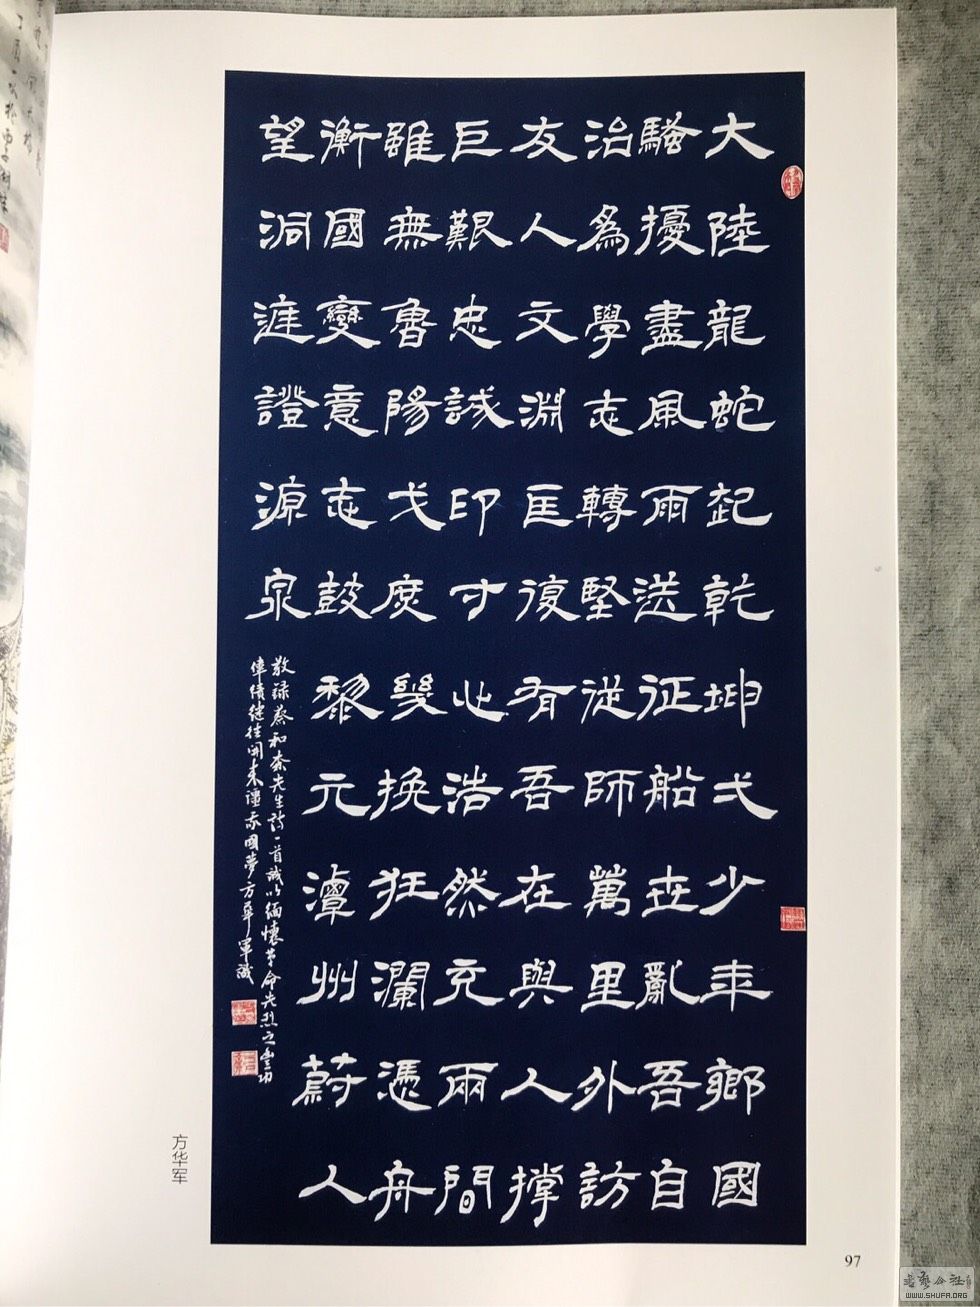 大陸龍蛇起乾坤弌少年鄉國
騷擾盡風雨送征船世亂吾自
治為學志轉堅從師萬里外訪
友人文淵匡復有吾在與人撐
巨艱忠誠印寸心浩然充兩間
雖無魯陽戈庶幾挽狂瀾憑舟
衡國變意志鼓黎元潭州蔚人
望洞涯證源泉
敬録蔡和森先生詩一首誠以緬懷革命先烈之豐功
偉績继往開来疆我國夢方華軍識
方华军
97
书艺公社
WWW.SHUFA.ORG